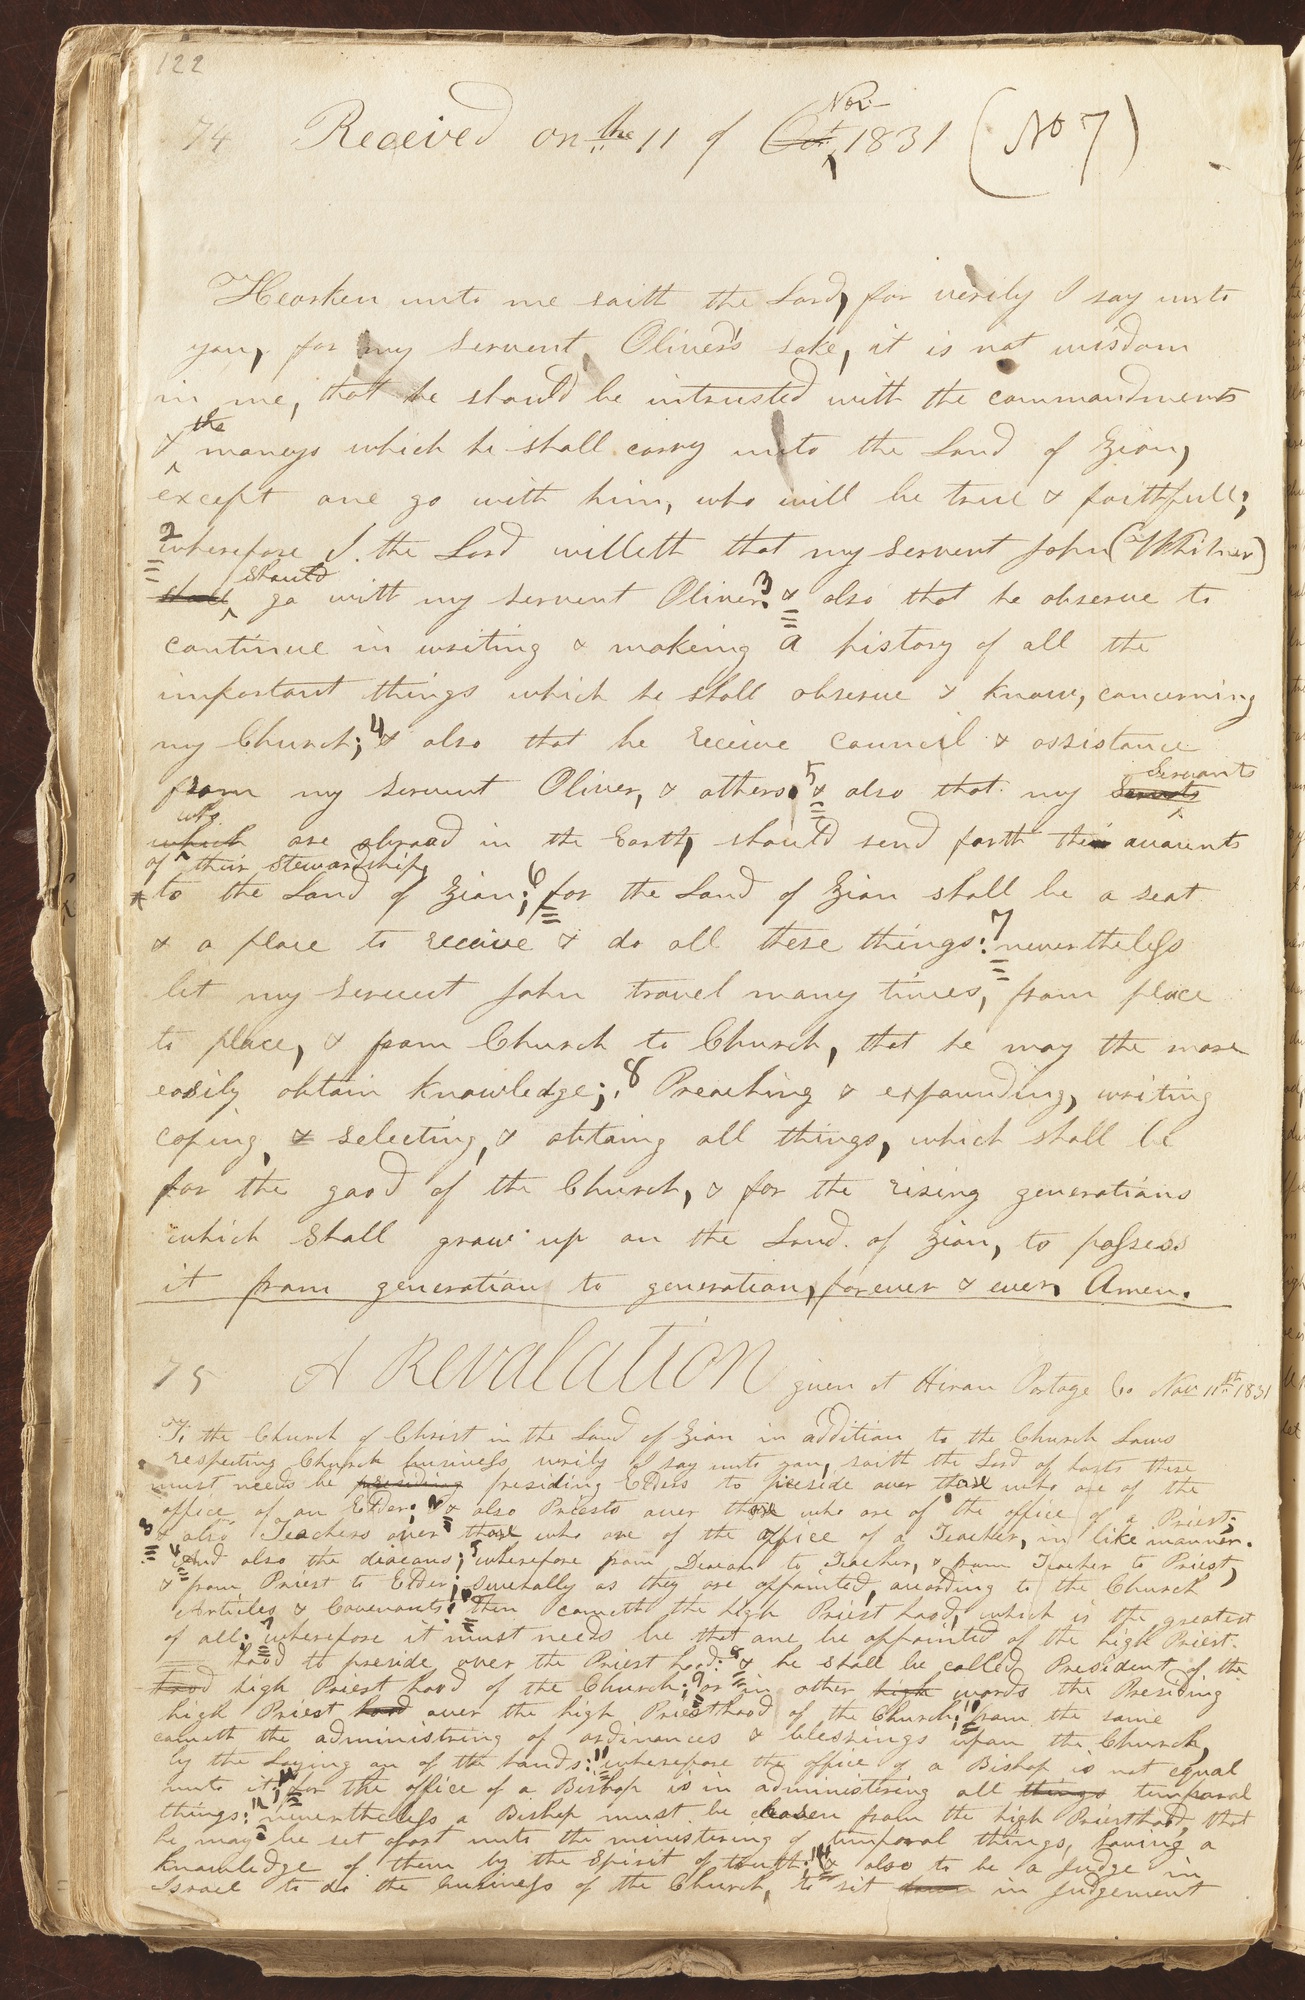 122
74 Received on the 11 of Oct Nov 1831 (No 7)
Hearken unto me saith the Lord, for verily I say unto
you, for my Servent, Oliver's sake, it is not wisdom
in me, that he should be intrusted with the commandments
& the moneys which he shall carry unto the Land of Zion,
except one go with him, who will be true & faithfull;
2 wherefore I the Lord willeth that my Servent John (Whitmer)
shall should go with my servent Oliver: 3 & also that he observe to
continue in writing & makeing a history of all the
important things which he shall observe & know, concerning
my Church; 4 & also that he receive council & assistance
from my servent Oliver, & others: 5 & also that my Servants Servants
which who are abroad in the Earth, should send forth their accounts
of their stewardships
* to the Land of Zion; 6 for the Land of Zion shall be a seat
& a place to receive & do all these things: 7 nevertheless
let my servent John travel many times, from place
to place, & from Church to Church, that he may the more
easily obtain knowledge; 8 Preaching & expounding, writing
coping, & selecting, & obtaing all things, which shall be
for the good of the Church, & for the rising generations
which shall grow up on the Land of Zion, to possess
it from generation to generation, forever & ever, Amen.
75 A Revalation given at Hiram Portage Co Nov 11th 1831
To the Church of Christ in the Land of Zion in addition to the Church Laws
respecting Church business verily I say unto you, saith the Lord of hosts there
must needs be presiding presiding Elders to preside over those who are of the
office of an Elder: 2 & also Priests over those who are of the office of a Priest;
3 & also Teachers over those who are of the office of a Teacher, in like manner.
4 And also the deacons; 5 wherefore from Deacon to Teacher, & from Teacher to Priest,
& from Priest to Elder; severally as they are appointed, according to the Church
Articles & Covenants: 6 then cometh the high Priest hood, which is the greatest
of all: 7 wherefore it must needs be that one be appointed of the high Priest-
hood to preside over the Priest hood: 8 & he shall be called President of the
hood high Priest hood of the Church; 9 or in other high words the Presiding
high Priest hood over the high Priesthood of the Church; 10 from the same
cometh the administring of ordinances & blessings upon the Church,
by the Laying on of the hands: 11 wherefore the office of a Bishop is not equal
unto it; for the office of a Bishop is in administering all things temporal
things: 12 nevertheless a Bishop must be chosen from the high Priesthood, that
he may be set apart unto the ministering of temporal things, having a
knowledge of them by the Spirit of truth; 14 & also to be a Judge in
Israel to do the business of the Church, to sit in Judgement